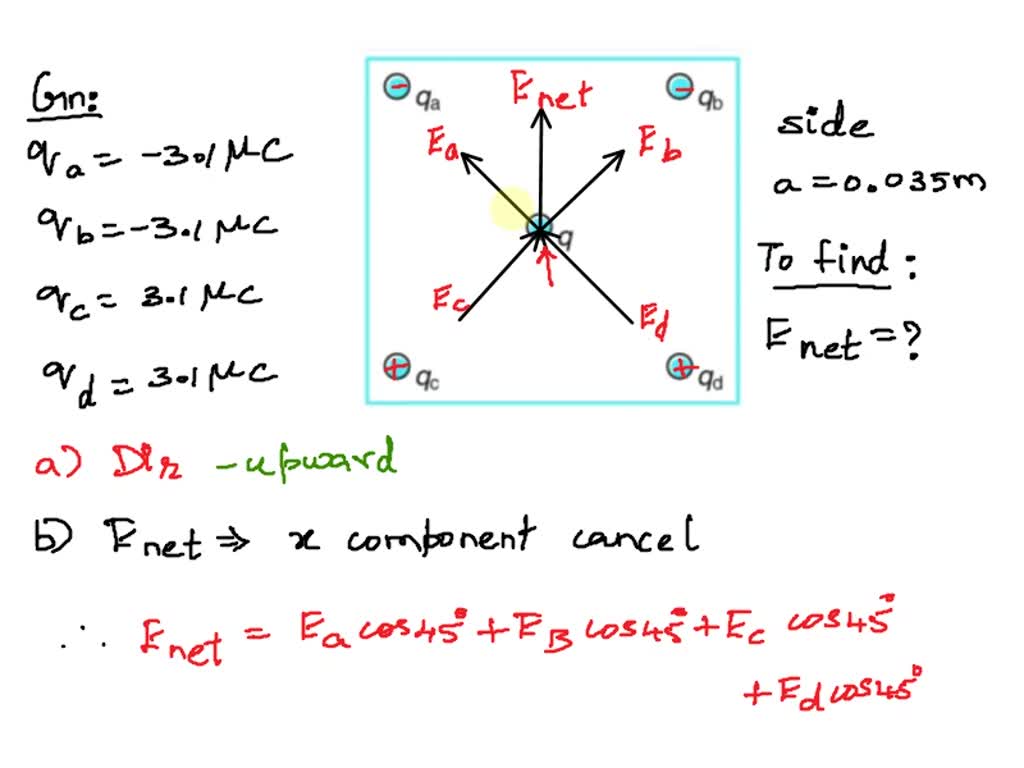 Gn:
qa = -3.1 μC
qb = -3.1 μC
qc = 3.1 μC
qd = 3.1 μC
- qa
Enet
- qb
Ea
Eb
q
Ec
Ed
+ qc
+ qd
side
a = 0.035m
To find:
Enet = ?
a) Dir - upward
b) Enet ⇒ x component cancel
∴ Enet = Ea cos45° + EB cos45° + Ec cos45°
+ Ed cos45°